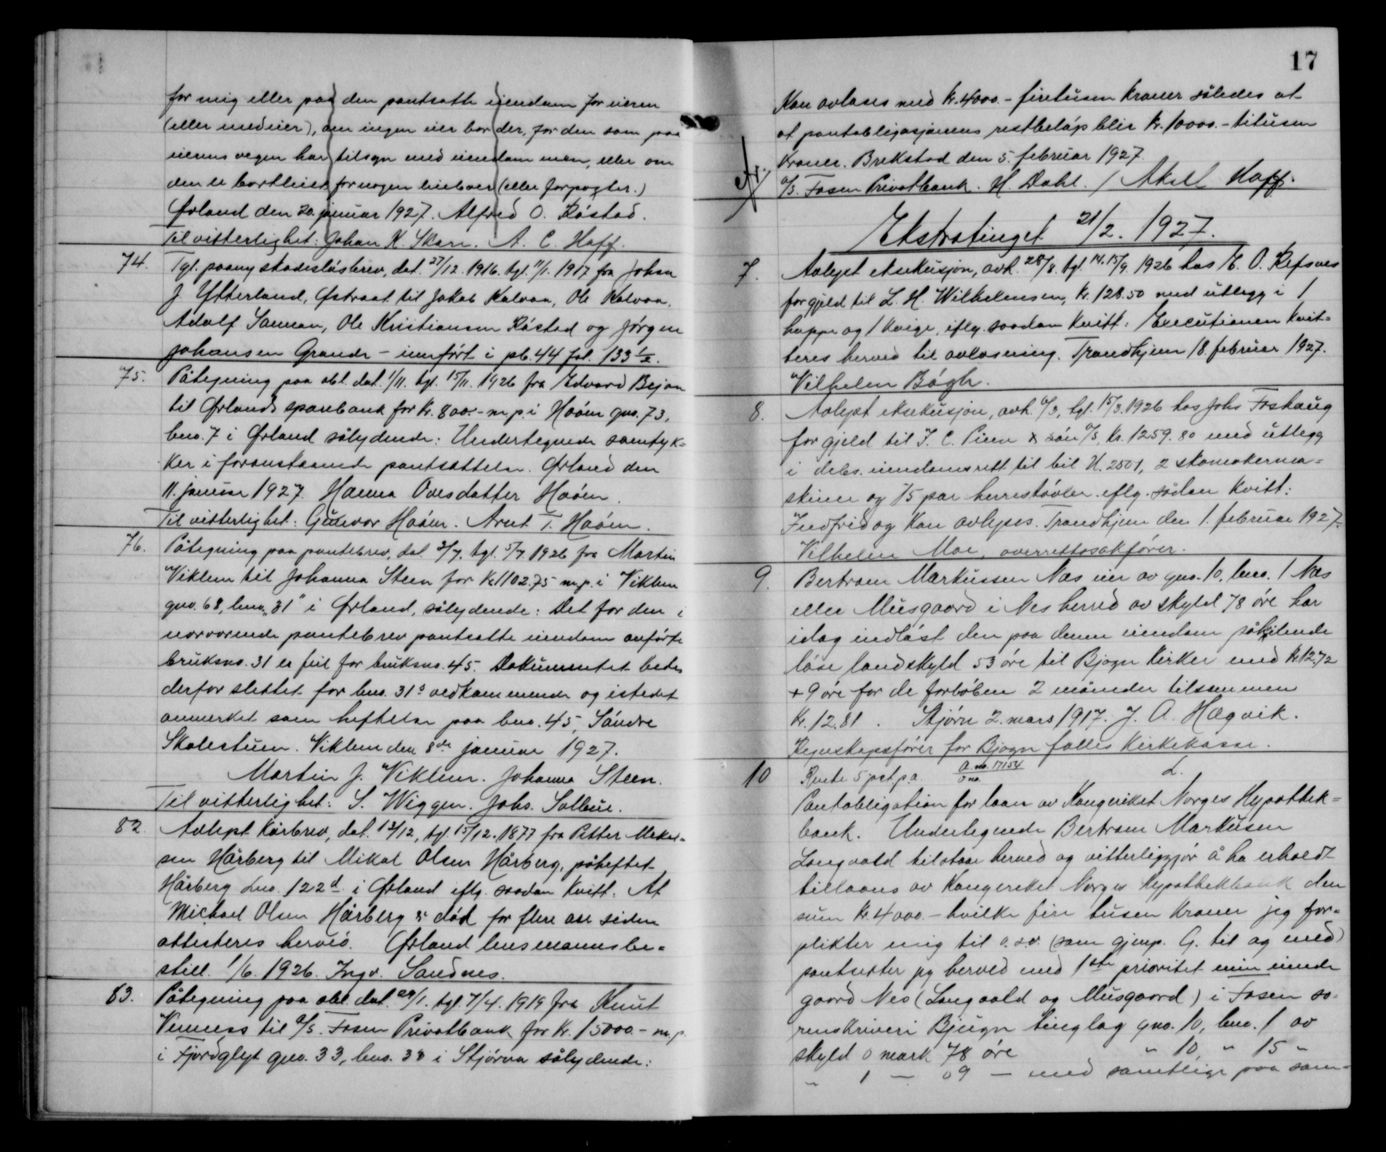 for mig eller paa den pantsatte eiendom for eieren
(eller medeier), om ingen eier bor der, for den som paa
eierens vegne har tilsyn med eiendommen, eller om
den er bortleiet for nogen leieboer (eller forpagter.)
Ørland den 20. januar 1927. Alfred O. Råstad.
Til vitterlighet: Johan K. Skarn. A. C. Hoff.
74. Tgl. paany skadesløsbrev, dat. 27/12. 1916. tgl. 11/1. 1917 fra Johan
J. Ytterland, Østraat til Jakob Kalvaa, Ole Kalvaa.
Adolf Sannan, Ole Kristiansen Råstad og Jørgen
Johansen Grande – innført i pb. 44 fol. 133
75. Påtegning paa obl. dat. 1/11. tgl. 15/11. 1926 fra Edvard Bejan
til Ørlands sparebank for kr. 800.- m. p. i Hoøen gno. 73,
bno. 7 i Ørland sålydende: Undertegnede samtyk-
ker i foranstaaende pantsettelse. Ørland den
11. januar 1927. Hanna Ovesdatter Hoøen.
Til vitterlighet: Gunvor Hoøen. Arnt T. Hoøen.
76. Påtegning paa pantebrev, dat. 3/7. tgl. 5/7 1926 fra Martin
Viklem til Johanna Steen for kr. 1102.75 m. p. i Viklem
gno. 68, bno. 31" i Ørland, sålydende: Det for den i
nærværende pantebrev pantsatte eiendom anførte
bruksno. 31 er feil for bruksno. 45. Dokumentet bedes
derfor slettet for bno. 31s vedkommende og istedet
anmerket som heftelse paa bno. 45, Søndre
Skolestuen. Viklem den 8de januar 1927.
Martin J. Viklem. Johanna Steen.
Til vitterlighet: S. Wiggen. Johs. Solbue.
82. Avlyst kårbrev, dat. 12/12, tgl. 15/12. 1877 fra Petter Mikal-
sen Hårberg til Mikal Olsen Hårberg, påheftet
Hårberg Lno. 122d i Ørland eflg. saadan kvitt. At
Michael Olsen Hårberg er død for flere aar siden
attesteres herved. Ørland lensmannsbe-
still. 1/6. 1926. Ingv. Sandnes.
83. Påtegning paa obl. dat. 29/1. tgl. 7/4. 1919 fra Knut
Venness til A/S. Fosen Privatbank for kr. 15000.- m. p.
i Fjordgløt gno. 33, bno. 38 i Stjørna sålydende:
17
Kan avløses med kr. 4000.- firetusen kroner således at
at pantobligasjonens restbeløp blir kr. 10000.- titusen
kroner. Brekstad den 5. februar 1927.
A/S. Fosen Privatbank. H. Dahl. / Aksel Hoff.
Ekstratinget 21/2. 1927.
7. Avlyst eksekusjon, avh. 28/8. tgl. 14.15/9. 1926 hos E. O. Refsnes
for gjeld til L. H. Wilhelmsen, kr. 128.50 med utlegg i 1
hoppe og 1 kvige, eflg. saadan kvitt: Executionen kvit-
teres herved til avløsning. Trondhjem 18. februar 1927.
Vilhelm Bøgh.
8. Avlyst eksekusjon, avh. 6/3, tgl. 15/3. 1926 hos Johs Foshaug
for gjeld til I. C. Piene & søn A/S. kr. 1259.80 med utlegg
i debs. eiendomsrett til bil U. 2501, 2 skomakerma-
skiner og 75 par herrestøvler eflg. sådan kvitt:
Indfrid og kan avlyses. Trondhjem den 1. februar 1927.
Vilhelm Moe, overrettssakfører.
9. Bertram Markussen Næs eier av gno. 10, bno. 1 Næs
eller Musgaard i Nes herred av skyld 78 øre har
idag indløst den paa denne eiendom påhvilende
løse landskyld 53 øre til Bjugn kirker med kr. 12.72
+ 9 øre for de forløbne 2 måneder tilsammen
kr. 12.81. Stjørn 2. mars 1917. J. A. Hægvik.
Regnskapsfører for Bjugn fælles kirkekasse.
10 Rente 5 pct. p.a. A no. 17154 L.
Pantobligation for laan av Kongeriket Norges Hypothek-
bank. Undertegnede Bertram Markusen
Langvold tilstaar herved og vitterliggjør å ha erholdt
tillaans av Kongeriket Norges Hypothekbank den
sum kr. 4000.- hvilke fire tusen kroner jeg for-
plikter mig til o.s.v. (som gjenp. G. til og med)
pantsetter jeg herved med 1ste prioritet min eiende
gaard Nes (Langvold og Musgaard) i Fosen so-
renskriveri Bjugn tinglag gno. 10, bno. 1 av
skyld 0 mark 78 øre " 10, " 15 "
" 1 – 09 – med samtlige paa sam-